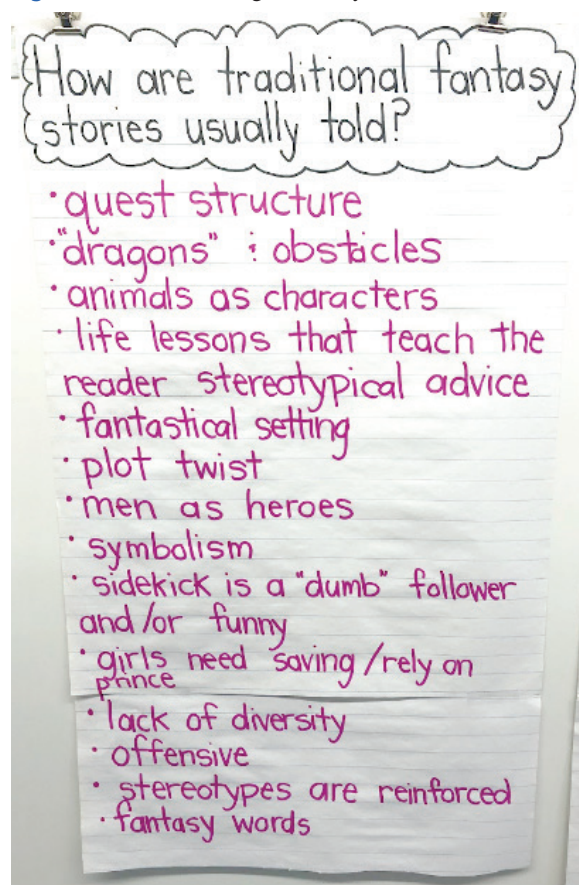 How are traditional fantasy
stories usually told?
• quest structure
• "dragons" & obstacles
• animals as characters
• life lessons that teach the
reader stereotypical advice
• fantastical setting
• plot twist
• men as heroes
• symbolism
• sidekick is a "dumb" follower
and/or funny
• girls need saving/rely on
prince
• lack of diversity
• offensive
• stereotypes are reinforced
• fantasy words